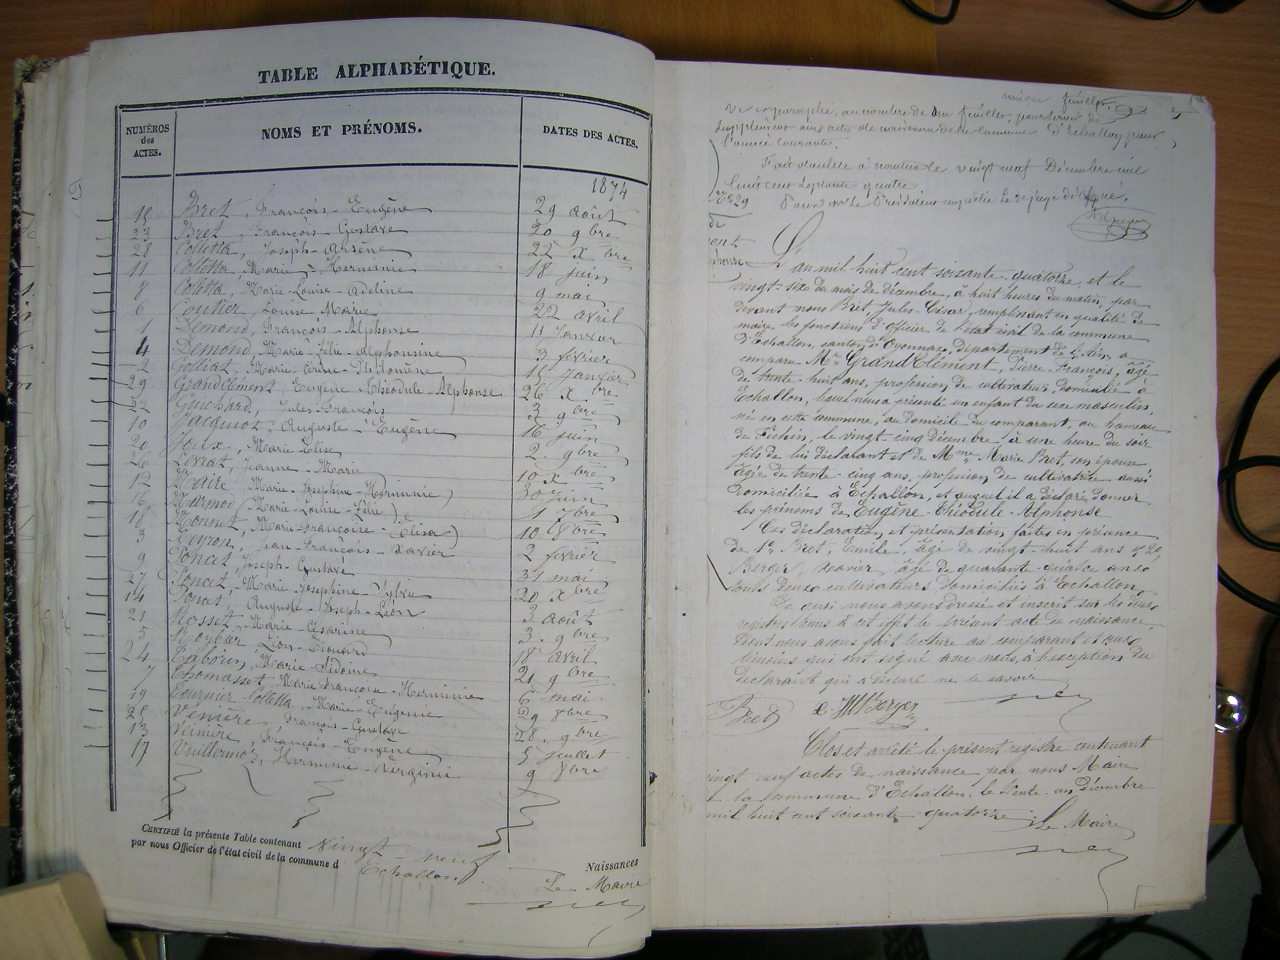 TABLE ALPHABÉTIQUE.
NUMÉROS des ACTES. NOMS ET PRÉNOMS. DATES DES ACTES.
1874
Bret, François-Eugène 29 août
23 Bret, François-Gustave 20 9bre
28 Colletta, Joseph-Arsène 22 Xbre
11 Colletta, Marie-Herminie 18 juin
8 Coletta, Marie-Louise-Adeline 9 mai
6 Coutier, Louise-Marie 22 avril
1 Demond, François-Alphonse 11 Janvier
4 Demond, Marie-Félie-Alphonsine 3 février
2 Marie 15 Janvier
29 Grandclément, Eugène-Théodule-Alphonse 26 Xbre
Guichard, Jules-François 3 9bre
10 Jacquiot, Auguste-Eugène 16 juin
20 Joux, Marie 2 9bre
26 Livrat, Jeanne-Marie 10 Xbre
12 Maire, Marie-Joséphine-Herminie 30 Juin
16 (Marie-Louise 1 7bre
18 Marie-Françoise-Elisa) 10 8bre
3 Jean-François-Xavier 2 février
9 Poncet, Joseph-Gustave 31 mai
27 Poncet, Marie-Joséphine-Sylvie 20 Xbre
14 Poncet, Auguste-Joseph-Léon 3 août
21 Rosset, Marie-Césarine 3 9bre
5 Léon-Edouard 18 avril
24 Tabourin, Marie-Sidoine 21 9bre
7 Thomasset, Marie-Françoise-Herminie 6 mai
19 Tournier-Colletta, Marie-Eugénie 29 8bre
25 Venière, François-Gustave 28 9bre
13 Venière, François-Eugène 5 juillet
17 Vuillermoz, Herminie-Virginie 9 8bre
CERTIFIÉ la présente Table contenant Vingt-neuf Naissances
par nous Officier de l'état civil de la commune d Echallon
Le Maire
feuillet
Vu et paraphé, au nombre de un feuillet, pour servir de
supplément aux actes de naissance de la commune d'Echallon pour
l'année courante.
Fait double à Nantua le vingt neuf Décembre mil
huit cent soixante quatorze
Pour le Président empêché le juge délégué,
No 29
L'an mil huit cent soixante-quatorze, et le
vingt-six du mois de décembre, à huit heures du matin, par
devant nous Bret, Jules-César, remplissant en qualité de
maire, les fonctions d'officier de l'état civil de la commune
d'Echallon, canton d'Oyonnax, département de l'Ain, a
comparu Mr Grandclément, Pierre-François, âgé
de trente-huit ans, profession de cultivateur, domicilié à
Echallon, lequel nous a présenté un enfant du sexe masculin,
né en cette commune, au domicile du comparant, au hameau
de le vingt-cinq Décembre à une heure du soir
fils de lui déclarant et de Mme Marie Bret, son épouse
âgée de trente-cinq ans, profession de cultivatrice aussi
domiciliée à Echallon, et auquel il a déclaré donner
les prénoms de Eugène-Théodule-Alphonse
Ces déclaration et présentation faites en présence
de 1° Bret, Emile, âgé de vingt-huit ans et 2°
Berger, Xavier, âgé de quarante-quatre ans
tous deux cultivateurs domiciliés à Echallon
De quoi nous avons dressé et inscrit sur les deux
registres à cet effet le présent acte de naissance,
dont nous avons fait lecture au comparant et aux
témoins qui ont signé avec nous, à l'exception du
déclarant qui a déclaré ne le savoir
Bret Berger Bret
Clos et arrêté le présent registre contenant
vingt neuf actes de naissance par nous Maire
de la commune d'Echallon le trente-un décembre
mil huit cent soixante-quatorze. Le Maire